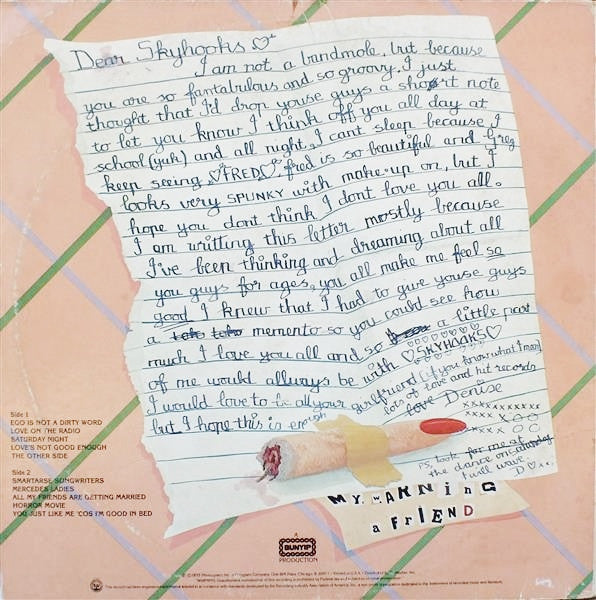 Dear Skyhooks
I am not a bandmole, but because
you are so fantabulous and so groovy. I just
thought that I'd drop youse guys a short note
to let you know I think off you all day at
school (yuk) and all night, I cant sleep because I
keep seeing FRED. fred is so beautiful and Greg
looks very SPUNKY with make-up on, but I
hope you dont think I dont love you all.
I am writting this letter mostly because
I've been thinking and dreaming about all
you guys for ages, you all make me feel so
good I knew that I had to give youse guys
a memento so you could see how
much I love you all and so a little part
of me would allways be with SKYHOOKS
I would love to be all your girlfriend (if you know what I mean)
but I hope this is enough
lots of love and hit records
love Denise
xxxxxxxxxx
PS, look for me at
the dance on saturday
I will wave
D
MY WARNiNG
a FRiEND
Side 1
EGO IS NOT A DIRTY WORD
LOVE ON THE RADIO
SATURDAY NIGHT
LOVE'S NOT GOOD ENOUGH
THE OTHER SIDE
Side 2
SMARTARSE SONGWRITERS
MERCEDES LADIES
ALL MY FRIENDS ARE GETTING MARRIED
HORROR MOVIE
YOU JUST LIKE ME 'COS I'M GOOD IN BED
A
BUNYIP
PRODUCTION